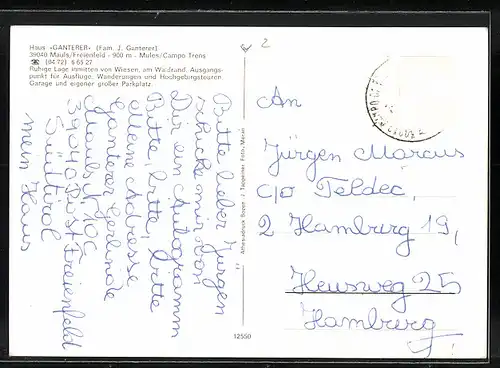 Haus «GANTERER» (Fam. J. Ganterer)
39040 Mauls/Freienfeld - 900 m - Mules/Campo Trens
☎ (04 72) 6 65 27
Ruhige Lage inmitten von Wiesen, am Waldrand. Ausgangs-
punkt für Ausflüge, Wanderungen und Hochgebirgstouren.
Garage und eigener großer Parkplatz.
Bitte lieber Jürgen
schicke mir von
Dir ein Autogramm
Bitte, bitte, bitte
Meine Adresse
Ganterer Gerlinde
Mauls N. 10c
39040 Post Freienfeld
Südtirol
mein Haus
Athesiadruck Bozen - J. Tappeiner Foto, Meran
12550
2
An
Jürgen Marcus
c/o Teldec,
2 Hamburg 19,
Heusweg 25
Hamburg